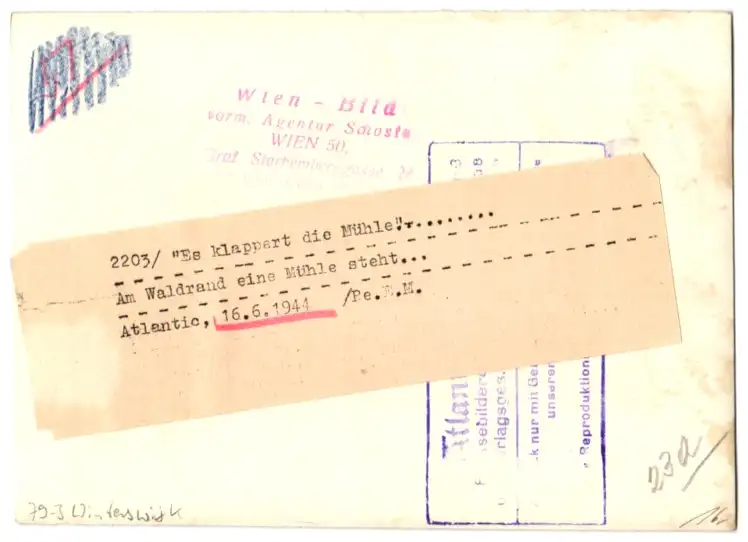 Wien - Bild
vorm. Agentur Schostal
WIEN 50.
Graf Starhemberggasse
2203/ "Es klappert die Mühle"..........
Am Waldrand eine Mühle steht...
Atlantic, 16.6.1944 /Pe.E.M.
Atlan
sebilder
rlagsges.
k nur mit Gen
unserer
Reproduktion
23a
79-3 Winterswijk